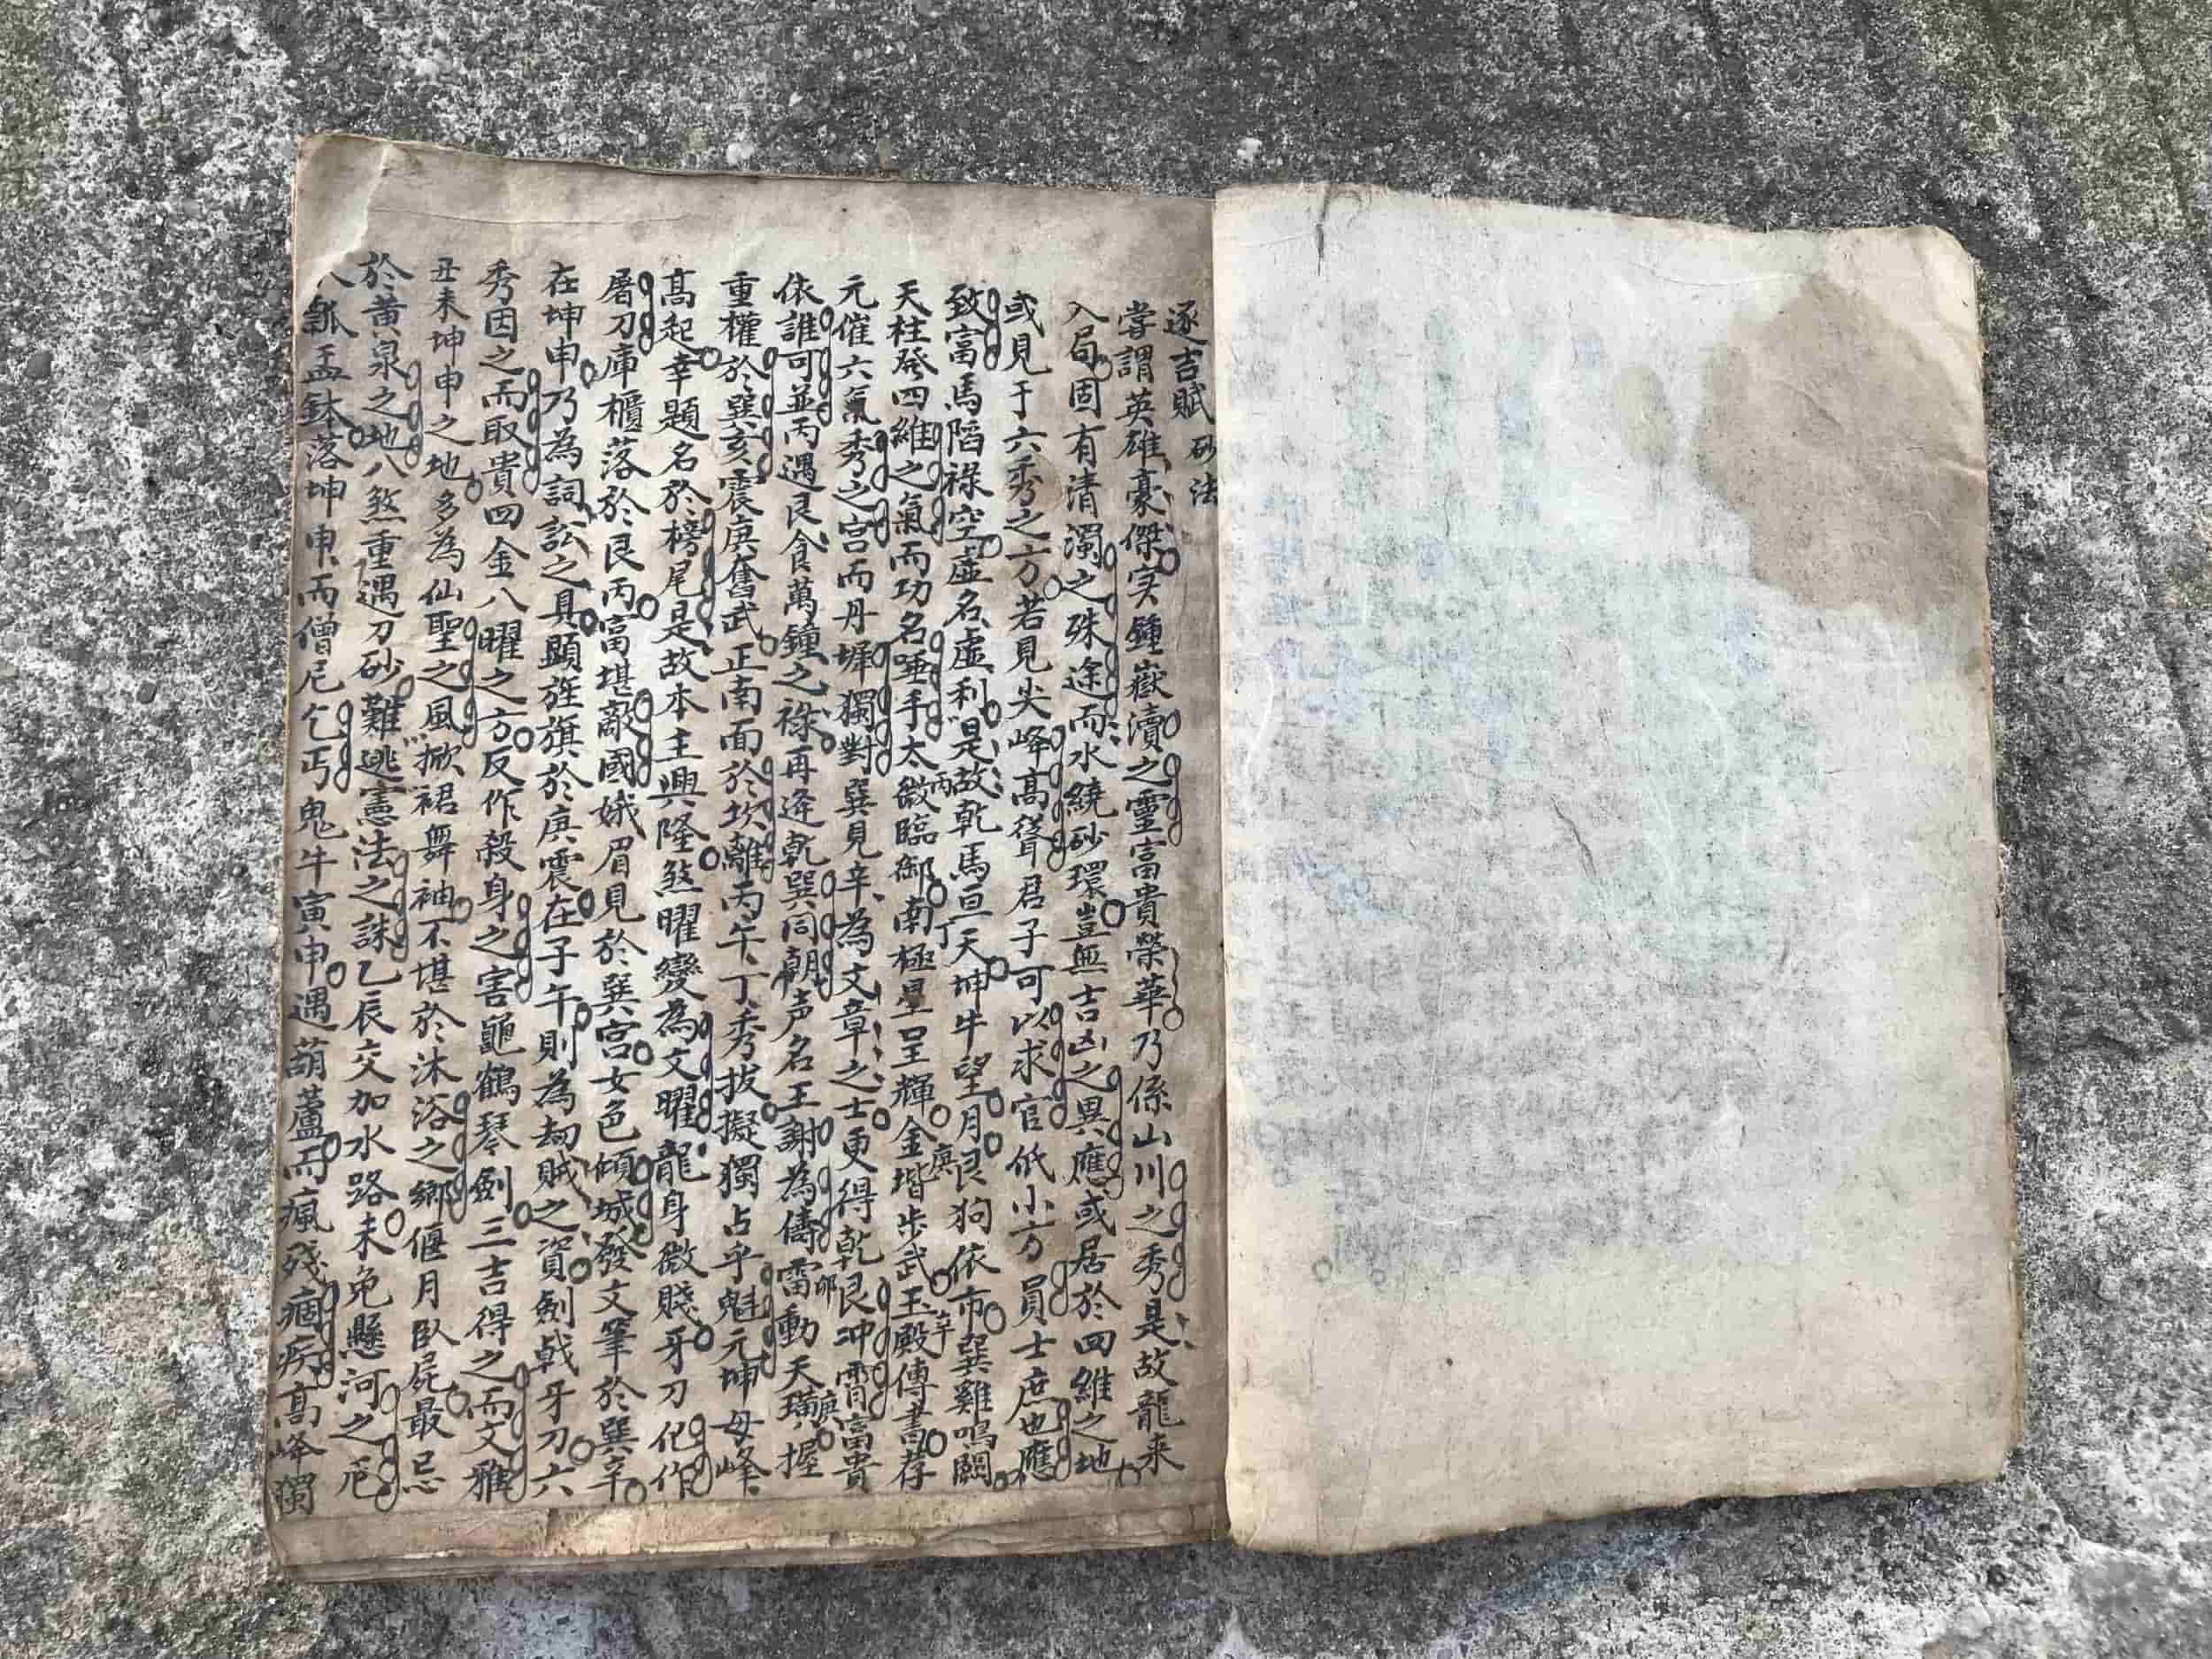 逐吉賦 砂法
嘗謂英雄豪傑实鍾嶽瀆之靈富貴榮華乃係山川之秀是故龍来
入局固有清濁之殊途而水繞砂環豈無吉凶之異應或居於四維之地
或見于六秀之方若見尖峰高聳君子可以求官低小方員士庶也應
致富馬陷祿空虛名虛利是故乾馬亘天坤牛望月艮狗依市巽雞鳴闕
天柱發四維之氣而功名唾手太微丙臨御南極丁星呈輝金堦庚步武玉殿辛傳書荐
元催六氣秀之宮而丹墀獨對巽見辛為文章之士更得乾艮冲霄富貴
依誰可並丙遇艮食萬鍾之祿再逢乾巽同朝声名王謝為儔雷卯動天璜庚握
重權於巽亥震庚奮武正南面於坎離丙午丁秀拔擬獨占乎魁元坤母峰
高起幸題名於榜尾是故本主興隆煞曜變為文曜龍身微賤牙刀化作
屠刀庫櫃落於艮丙富堪敵國娥眉見於巽宮女色傾城發文筆於巽辛
在坤申乃為詞訟之具顯旌旗於庚震在子午則為刼賊之資劍戟牙刀六
秀因之而取貴四金八曜之方反作殺身之害龜鶴琴劍三吉得之而文雅
丑未坤申之地多為仙聖之風掀裙舞袖不堪於沐浴之鄉偃月臥屍最忌
於黃泉之地八煞重遇刀砂難逃憲法之誅乙辰交加水路未免懸河之厄
瓢盂鉢落坤申而僧尼乞丐鬼牛寅申遇葫蘆而瘋殘痼疾高峰獨